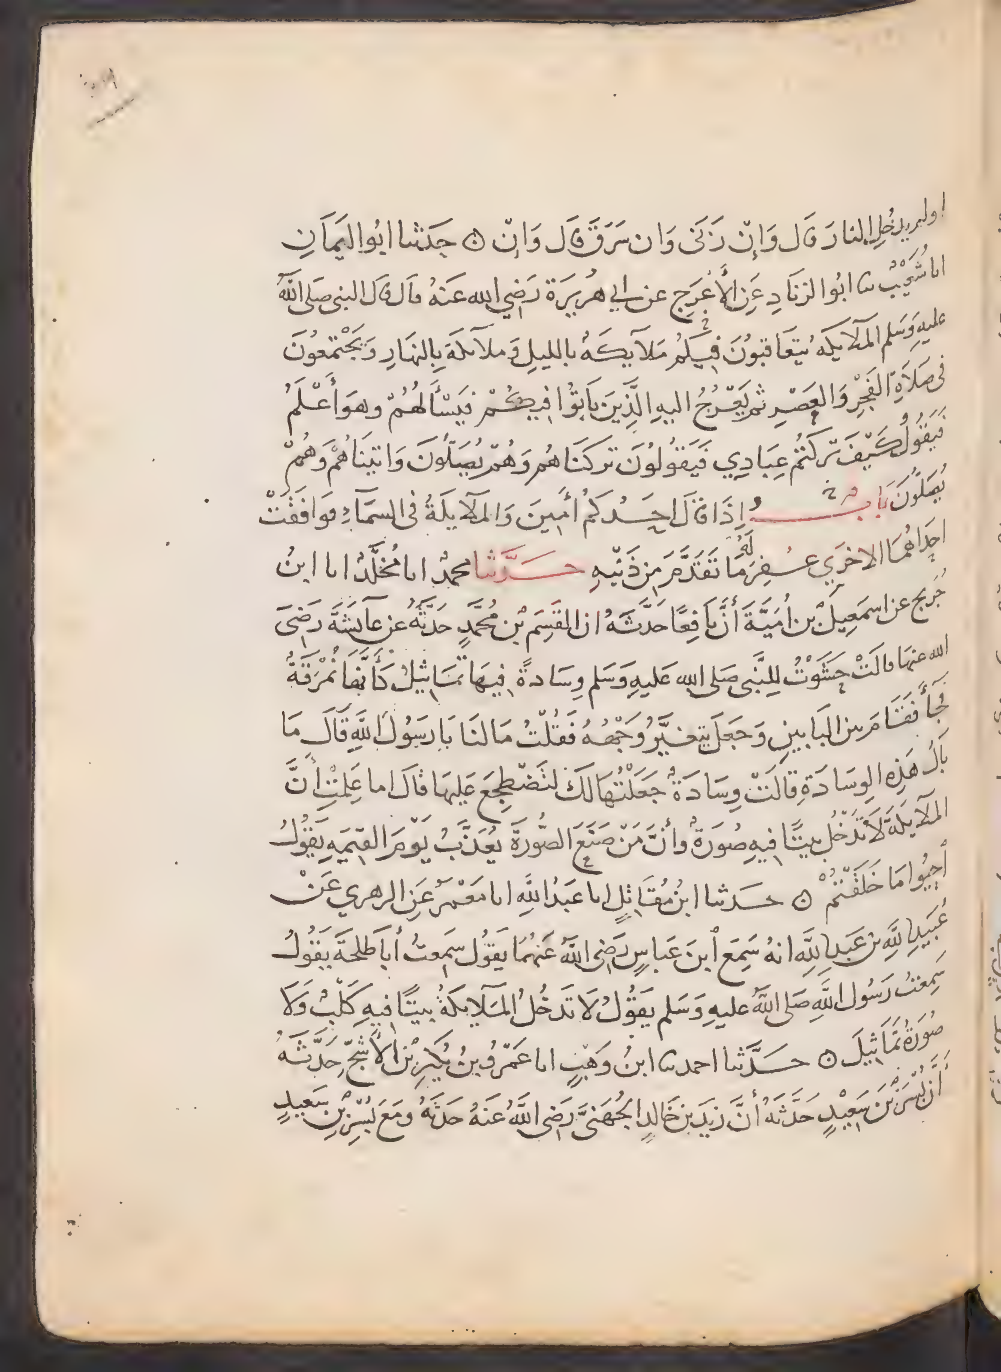 او لم يدخل النار قال وَإِنْ زَنَى وَان سَرَقَ قَالَ وَإنْ ۞ حَدَثنا ابُو اليَمَانِ
انا شُعَيْبٌ ثنا ابُو الزنَادِ عَنِ الأَعْرَجِ عن ابي هُرَيرَة رَضِي الله عَنهُ قال قال النبي صلى اللهُ
عليهِ وَسَلم المَلايكه يَتعَاقبُونَ فِيكُم مَلايكَةٌ بالليلِ وَملايكَة بِالنهَارِ وَيَجْتَمعُونَ
في صَلاةِ الفَجْرِ وَالعَصْرِ ثم يَعْرُجُ اليهِ الَّذِينَ بَاتُوا فِيكُمْ فَيَسْأَلهُمْ وَهوَ أَعْلَمُ
فَيَقُولُ كَيْفَ تركتُم عِبَادِي فَيَقولُونَ تركنَاهُم وَهُمْ يُصَلُّونَ وَاتينَاهُمْ وَهُمْ
يُصَلُّونَ بَابٌ إِذَا قالَ احَدُكُمْ أمِينَ وَالملايكةُ في السَّمَاءِ فوَافَقَتْ
احدَاهُمَا الاخرَي غُفِرَ لَهُ مَا تَقَدَّمَ مِن ذَنْبِهِ حَدَّثنا محمدٌ انا مُخلَدٌ انا ابنُ
جُرَيج عن اسمَعِيلَ بْن أمَيَّةَ أنَّ نَافِعًا حَدَّثَهُ ان القسِمَ بْن مُحمَّدٍ حَدَّثَهُ عن عَايشَةَ رَضِيَ
الله عنها قالَتْ حَشَوْتُ لِلنَّبي صَلى الله عَليهِ وَسَلم وِسَادةً فيهَا تَمَاثيلُ كأَنَّهَا نُمْرُقَةٌ
فجَأَ فقَامَ بين البَابينِ وَجَعَلَ يتغيَّرُ وَجْههُ فَقُلْتُ مَا لنَا يَا رَسُولَ اللَّهِ قَالَ مَا
بَالُ هَذِهِ الوِسَادَةِ قالَتْ وِسَادَةٌ جَعَلتُهَا لَكَ لتَضْطجِعَ عَليهَا قالَ اما عَلِمْتِ أنَّ
المَلايكَةَ لا تَدْخُلُ بيتًا فيهِ صُورَةٌ وأنَّ مَنْ صَنَعَ الصُّورَةَ يُعَذَّبُ يَوْمَ القِيمَهِ يَقُولُ
أحيُوا مَا خَلَقْتُمْ ۞ حَدثنا ابنُ مُقَاتِلٍ انا عَبدُ اللَّهِ انا مَعْمَرٌ عَنِ الزهري عَنْ
عُبَيدِ اللَّهِ بن عَبدِ اللَّهِ انهُ سَمِعَ ابنَ عَباسٍ رَضِي اللَّهُ عَنهُمَا يَقُول سَمِعتُ أَبَا طلحَةَ يَقُولُ
سَمِعتُ رَسُول اللَّهِ صَلى اللَّهُ عليهِ وَسَلم يَقُولُ لا تَدخُلُ المَلايكَةُ بيتًا فيهِ كَلْبٌ وَلا
صُورَةُ تَمَاثيلَ ۞ حَدَّثنا احمد ثنا ابنُ وَهْبٍ انا عَمْرٌو بنُ بُكَيرَ بْنَ الأَشَجِّ حَدَّثَهُ
أَنَّ بُسْرَ بْنَ سَعِيْدٍ حَدَّثَهُ أنَّ زيدَ بن خَالِدٍ الجُهَنيَّ رَضِي اللَّهُ عَنهُ حَدثَهُ وَمَعَ بُسْرِ بْنِ سَعِيدٍ